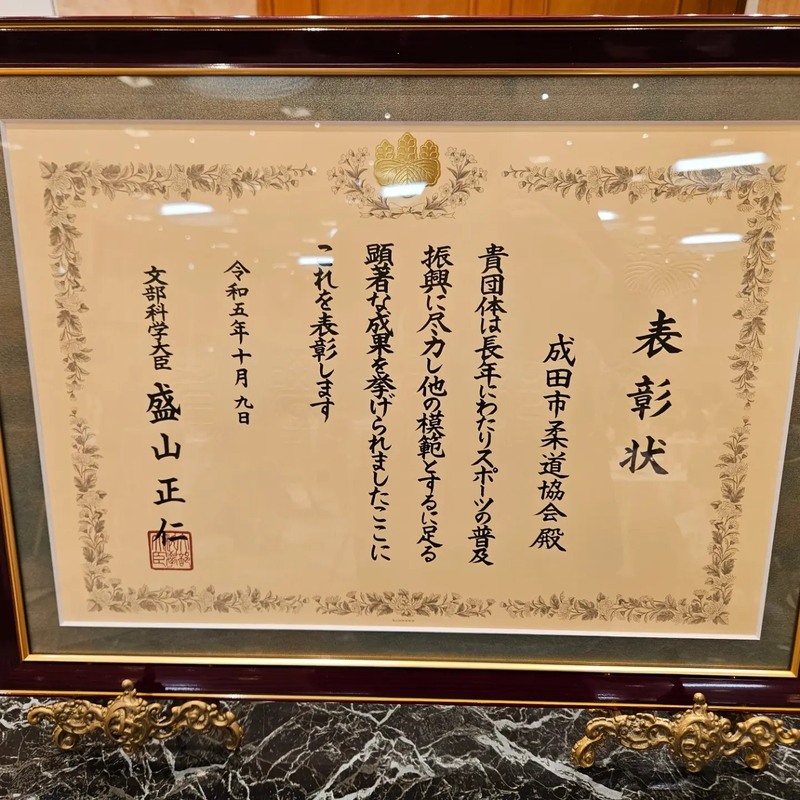 表彰状
成田市柔道協会殿
貴団体は長年にわたりスポーツの普及
振興に尽力し他の模範とするに足る
顕著な成果を挙げられましたここに
これを表彰します
令和五年十月九日
文部科学大臣 盛山正仁